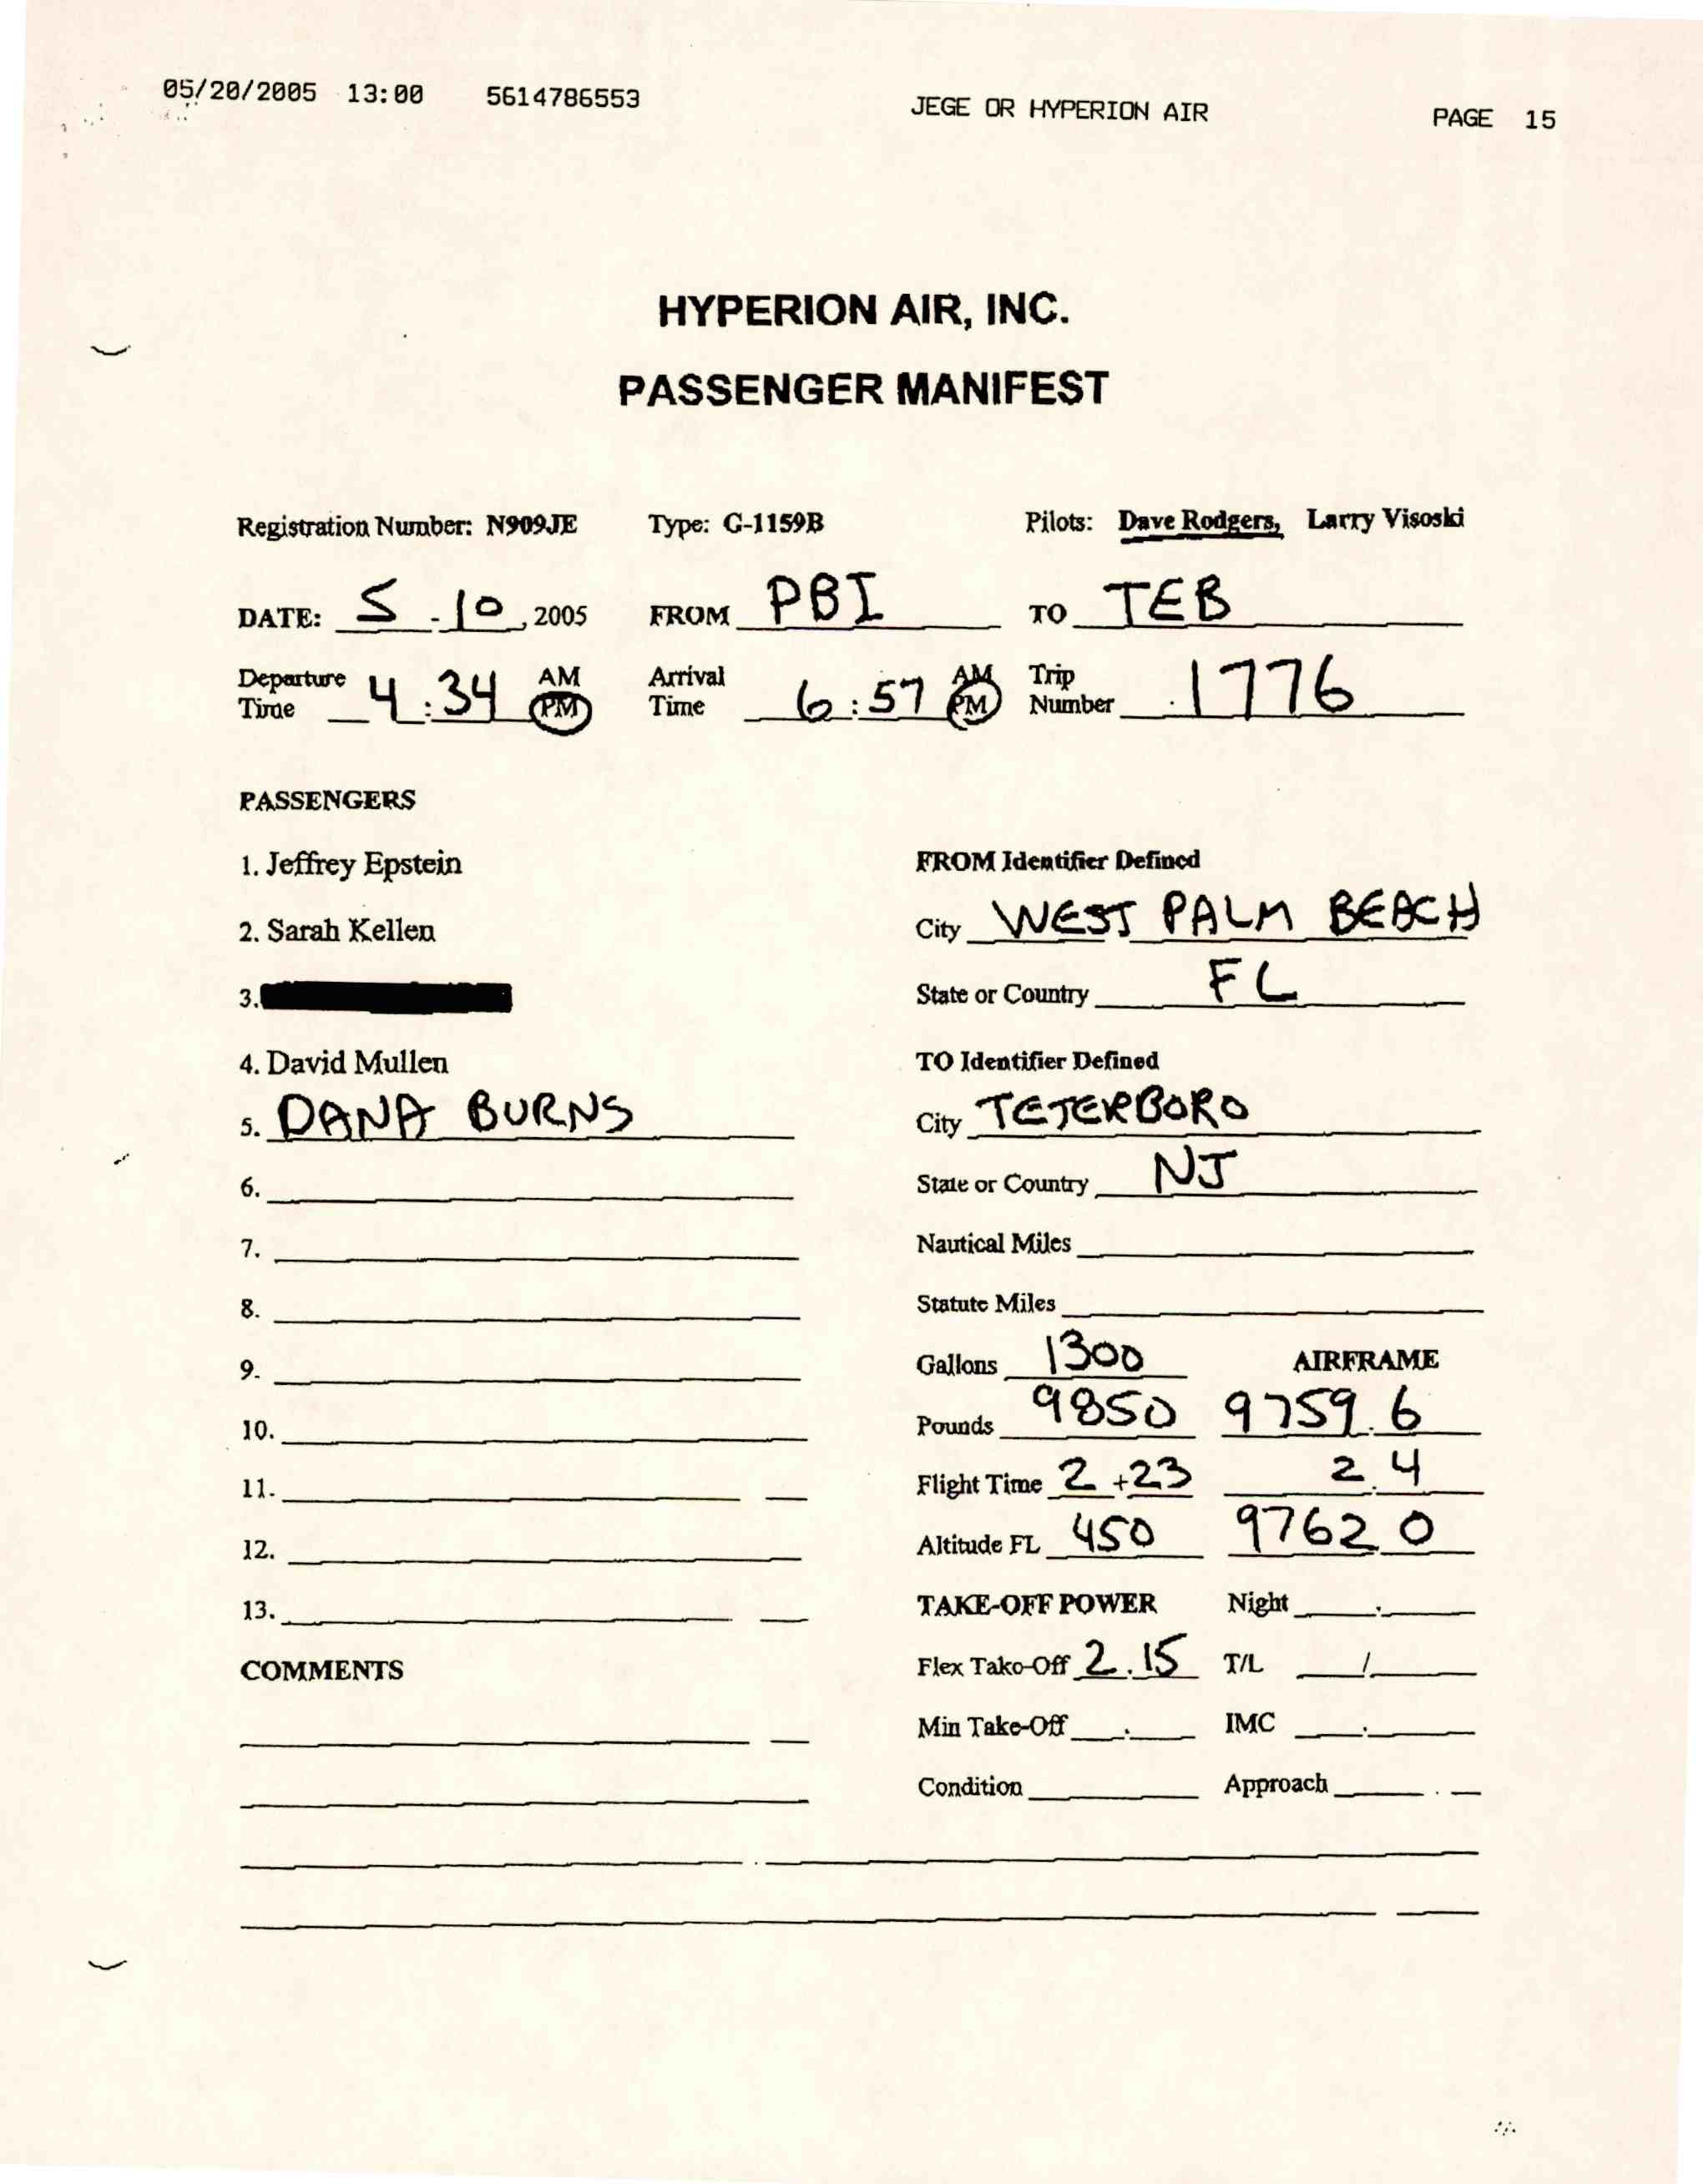 05/20/2005 13:00 5614786553 JEGE OR HYPERION AIR PAGE 15
HYPERION AIR, INC.
PASSENGER MANIFEST
Registration Number: N909JE Type: G-1159B Pilots: Dave Rodgers, Larry Visoski
DATE: 5 - 10, 2005 FROM PBI TO TEB
Departure Time 4:34 AM PM Arrival Time 6:57 AM PM Trip Number 1776
PASSENGERS
1. Jeffrey Epstein FROM Identifier Defined
2. Sarah Kellen City WEST PALM BEACH
3. State or Country FL
4. David Mullen TO Identifier Defined
5. DANA BURNS City TETERBORO
6. State or Country NJ
7. Nautical Miles
8. Statute Miles
9. Gallons 1300 AIRFRAME
10. Pounds 9850 9759.6
11. Flight Time 2+23 2.4
12. Altitude FL 450 9762.0
13. TAKE-OFF POWER Night .
COMMENTS Flex Take-Off 2.15 T/L /
Min Take-Off . IMC .
Condition Approach .